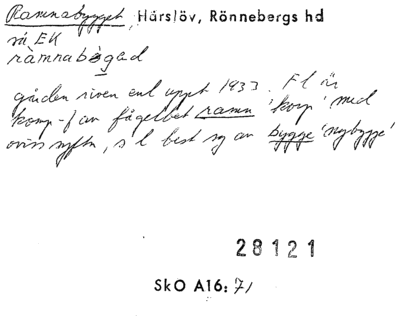 Ramnabygget, Hårslöv, Rönnebergs hd
så EK
ràmnabògad
gården riven enl uppt 1933. Fl är
komp-f av fågelbet ramn 'korp' med
oviss syftn, s l best sg av bygge 'nybygge'
28121
SkO A16: 71